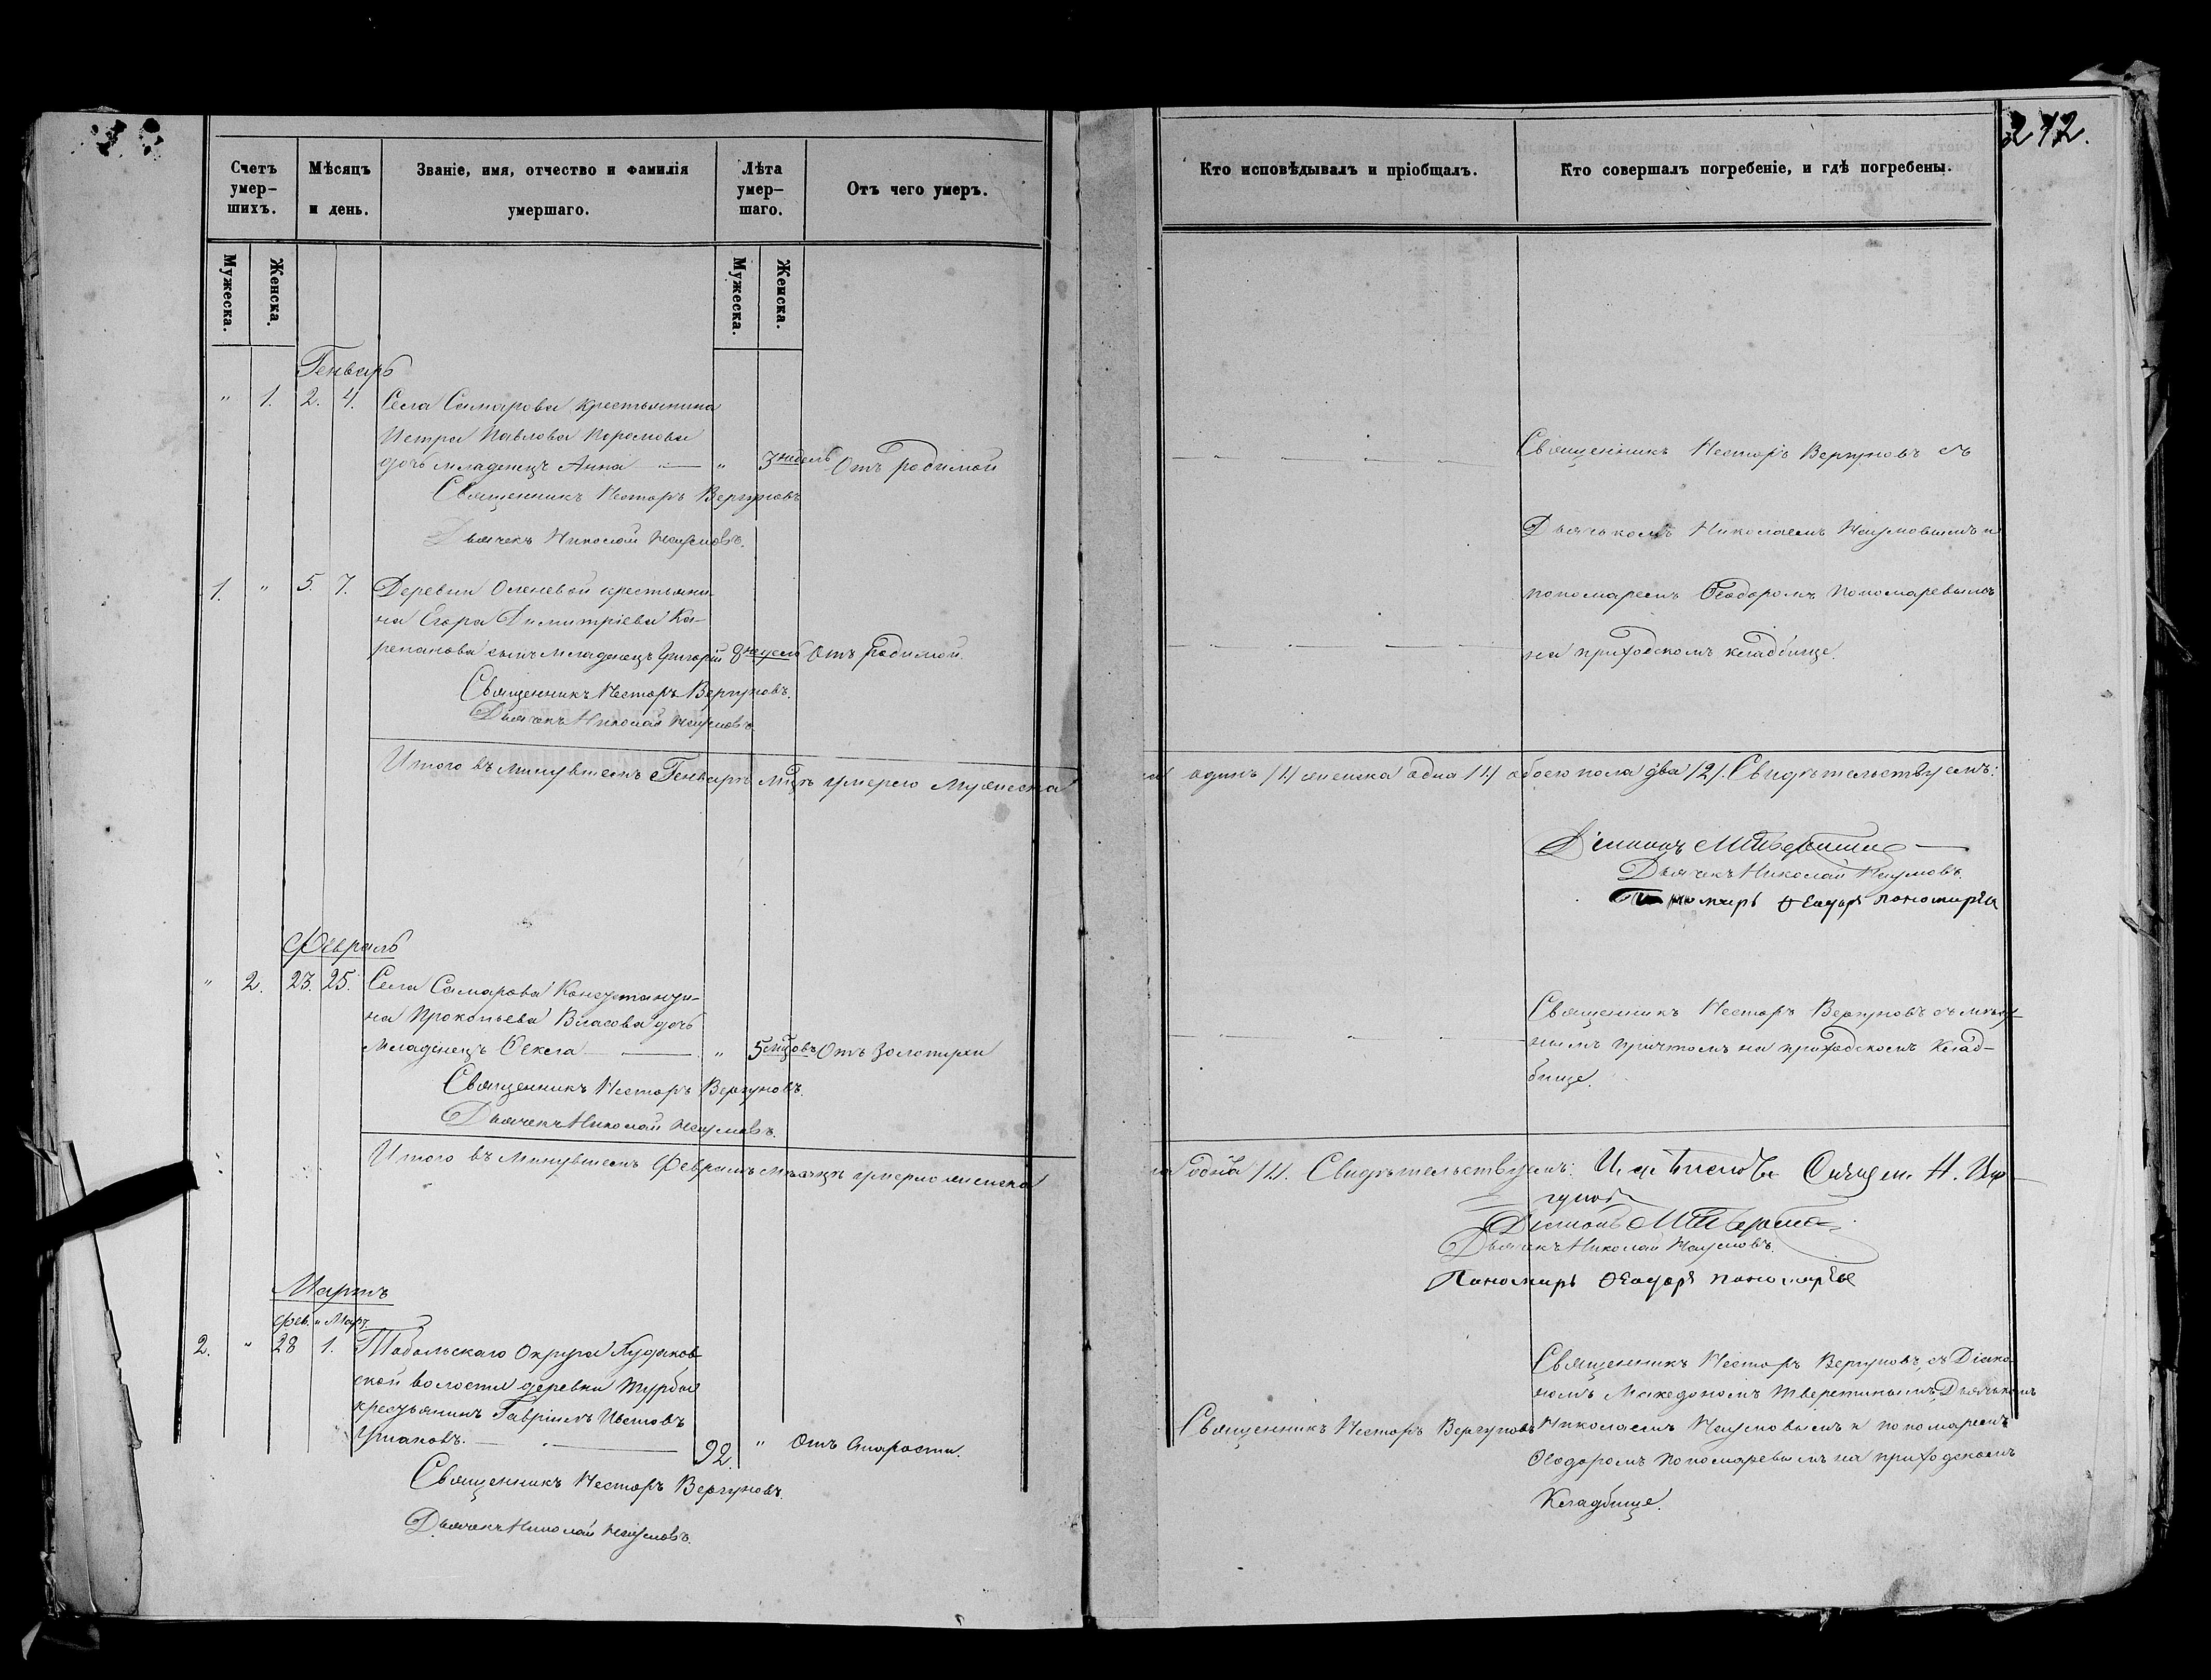 242.
Счетъ умер-
шихъ.
Мѣсяцъ
и день.
Званіе, имя, отчество и фамилія
умершаго.
Лѣта
умер-
шаго.
Отъ чего умеръ.
Кто исповѣдывалъ и пріобщалъ.
Кто совершалъ погребеніе, и гдѣ погребены.
Мужеска.
Женска.
Мужеска.
Женска.
Генварь
" 1. 2. 4. Села Самарова крестьянина
Петра Павлова
дочь младенецъ Анна " 3 недѣль Отъ родимой
Священникъ Несторъ Вергуновъ
Дьячекъ Николай Наумовъ.
Священникъ Несторъ Вергуновъ съ
Дьячькомъ Николаемъ Наумовымъ и
пономаремъ Ѳеодоромъ Пономаревымъ
на приходскомъ кладбище.
1. " 5. 7. Деревни крестьяни-
на Егора Димитріева Ка-
репанова сынъ младенецъ Григорій 8 недель Отъ родимой.
Священникъ Несторъ Вергуновъ.
Дьячекъ Николай Наумовъ
Итого въ минувшемъ Генварѣ м-цѣ умерло мужеска
одинъ /1/ женска одна /1/ обоего пола два /2/. Свидѣтельствуемъ:
Діаконъ
Дьячекъ Николай Наумовъ.
Пономарь Ѳеодоръ Пономаревъ
Февраль
" 2. 23. 25. Села Самарова Константи-
на Прокопьева Власова дочь
младенецъ Ѳекла " 5 м-цовъ Отъ золотухи
Священникъ Несторъ Вергуновъ.
Дьячекъ Николай Наумовъ.
Священникъ Несторъ Вергуновъ съ
нымъ причтомъ на приходскомъ клад-
бище.
Итого въ минувшемъ Февралѣ мѣсяцѣ умерло женска
одна /1/. Свидѣтельствуемъ: Священ. Н. Вер-
гуновъ
Діаконъ
Дьячекъ Николай Наумовъ.
Пономарь Ѳеодоръ Пономаревъ
Мартъ
Фев. и Мар.
2. " 28 1. Тобольскаго Округа
ской волости деревни
крестьянинъ Гавріилъ
Ушаковъ. 92. " Отъ Старости.
Священникъ Несторъ Вергуновъ.
Дьячекъ Николай Наумовъ.
Священникъ Несторъ Вергуновъ
Священникъ Несторъ Вергуновъ, съ Діако-
номъ Македономъ Тверетинымъ, Дьячькомъ
Николаемъ Наумовымъ и пономаремъ
Ѳеодоромъ Пономаревымъ на приходскомъ
Кладбище.